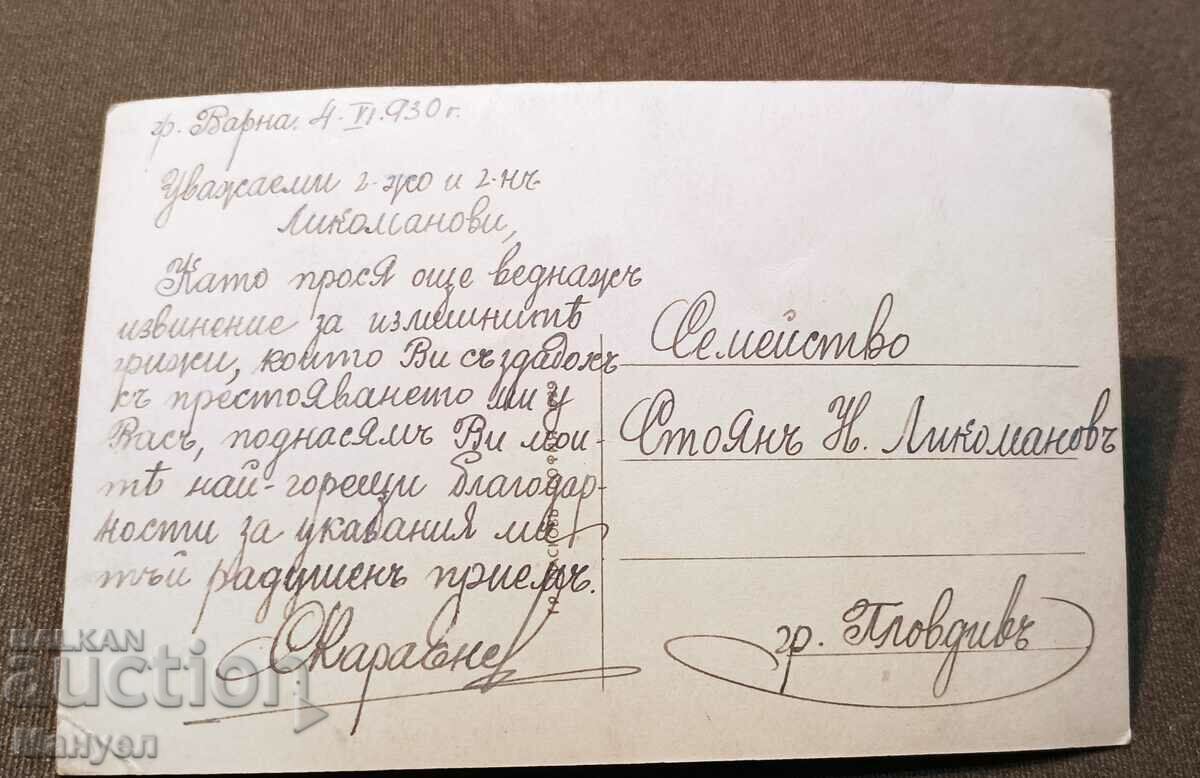 гр. Варна. 4. VI. 930 г.
Уважаеми г-жо и г-нъ
Ликоманови,
Като прося още веднажъ
извинение за излишнитѣ
грижи, които Ви създадохъ
къ престояването ми у
Васъ, поднасямъ Ви мои-
тѣ най-горещи благодар-
ности за указания ми
тъй радушенъ приемъ.
Семейство
Стоянъ Н. Ликомановъ
гр. Пловдивъ
BALKAN
auction
Мануел